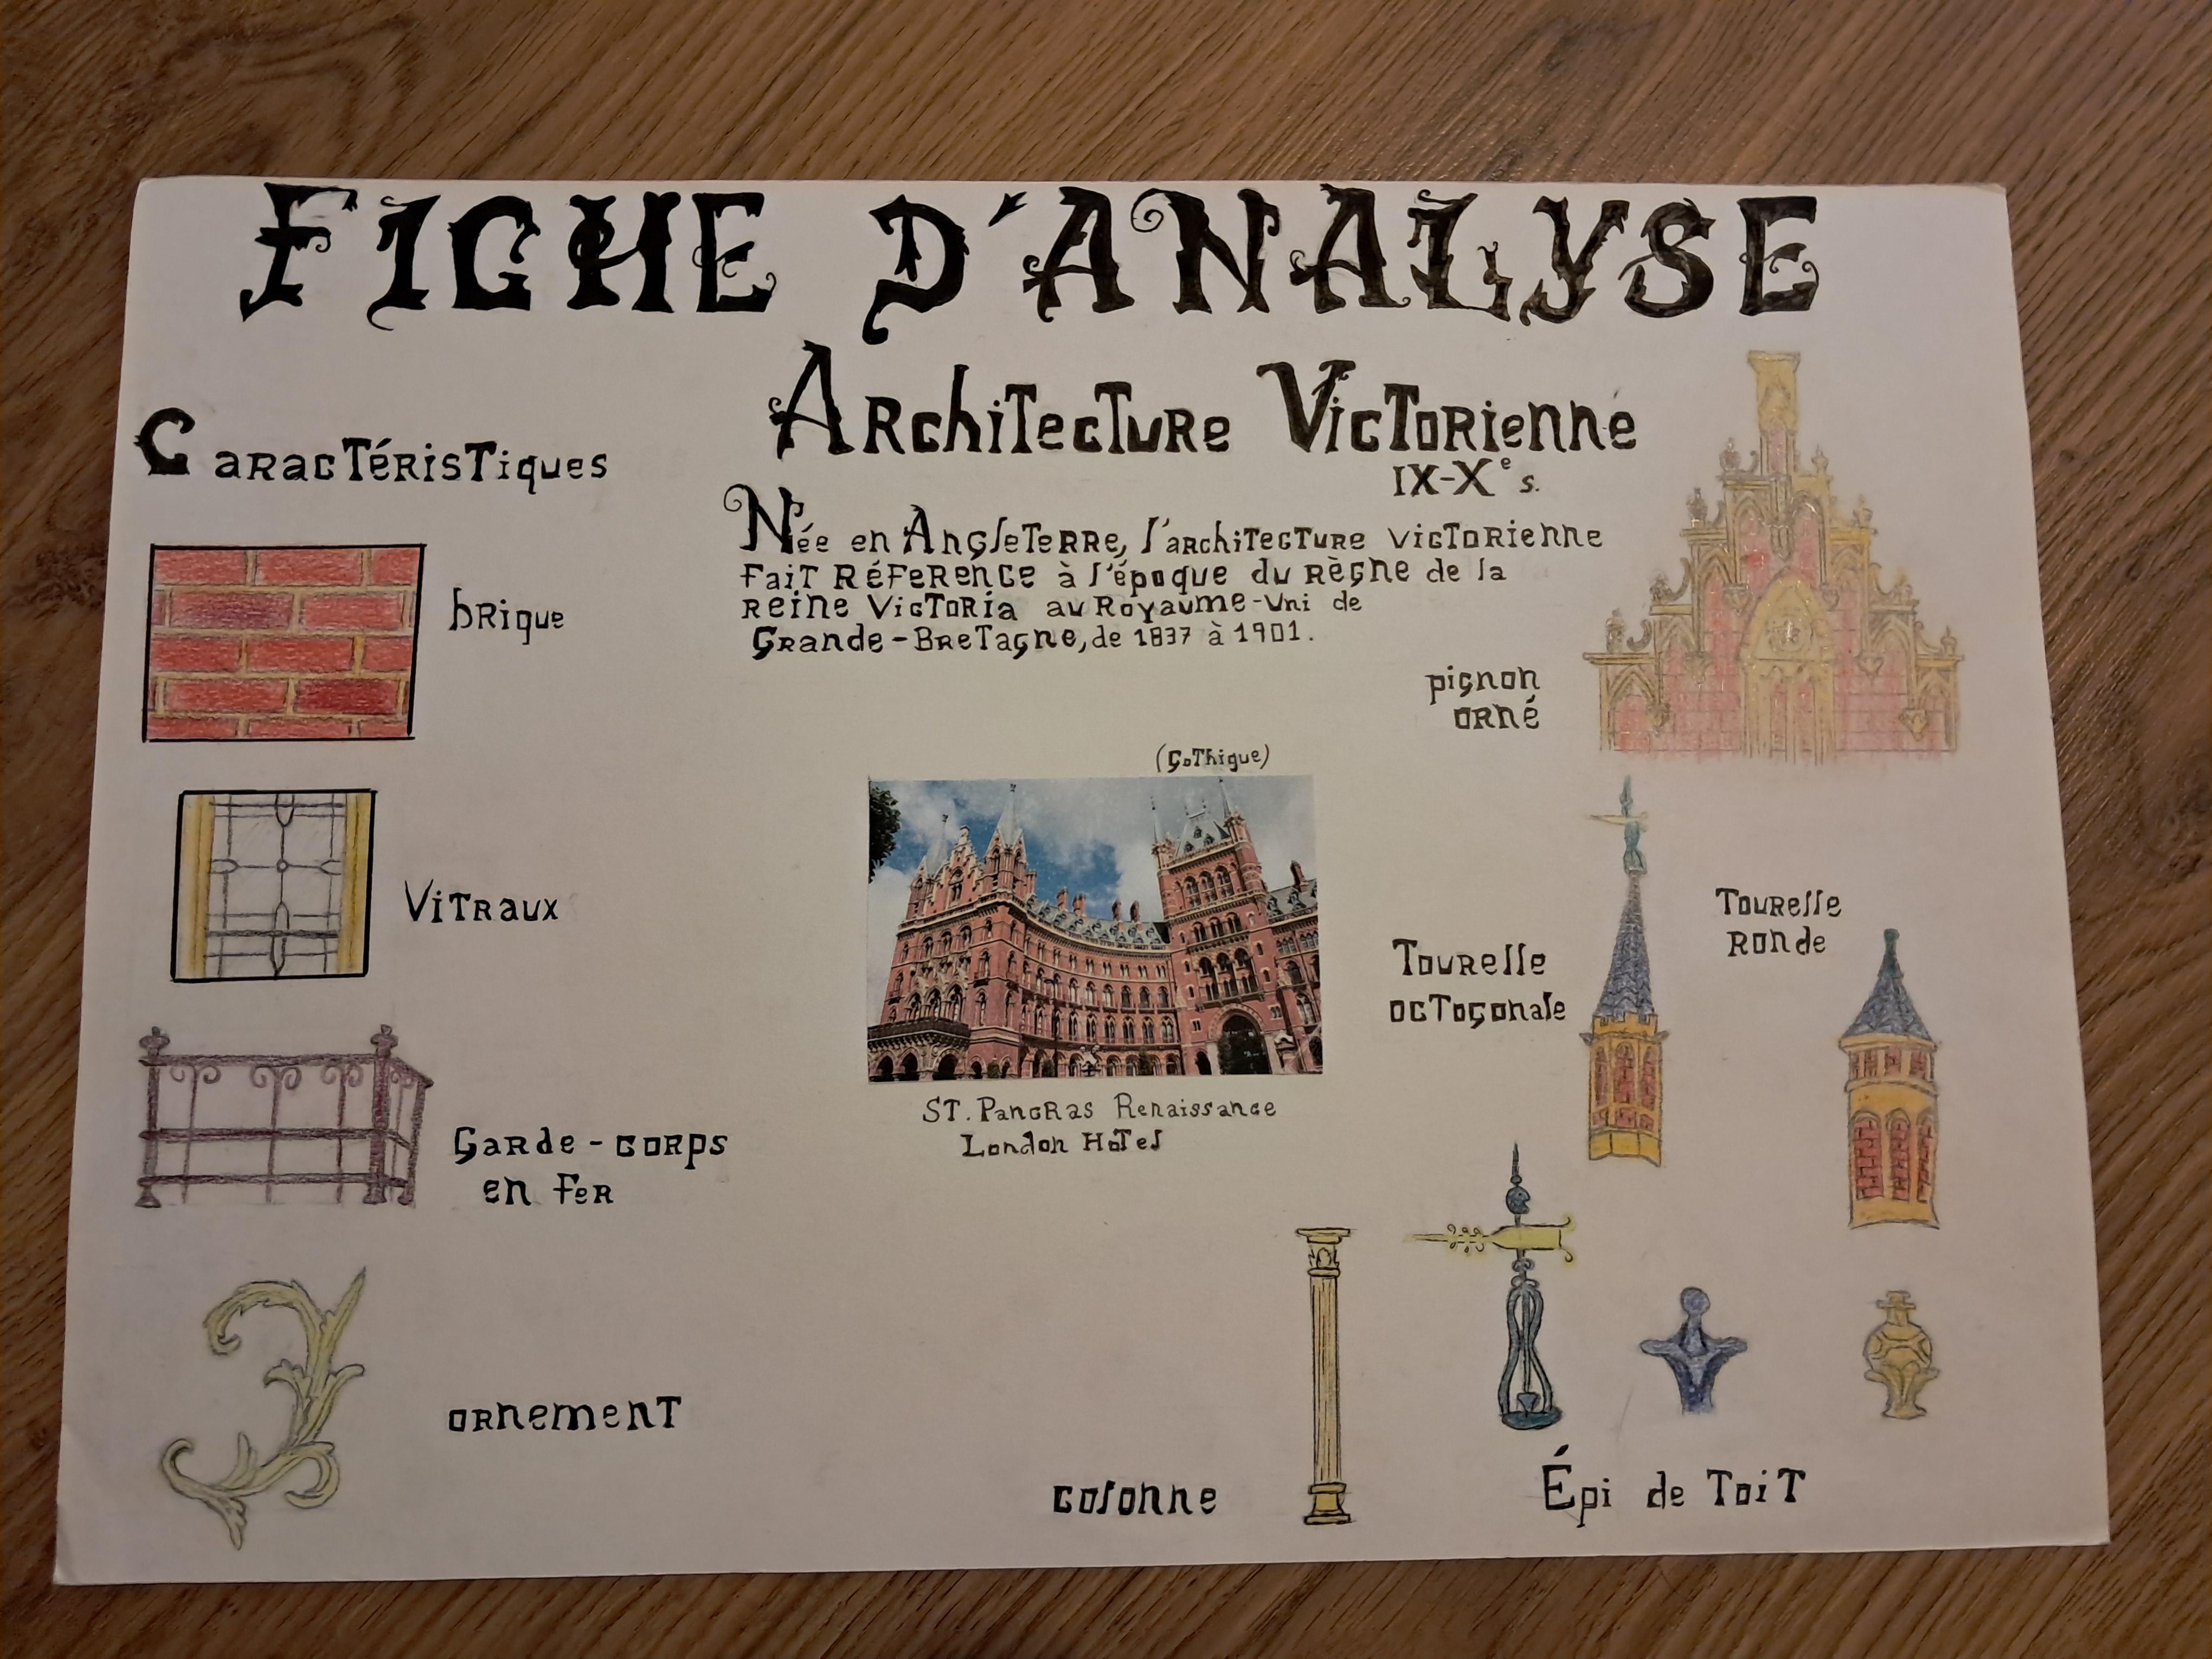 FICHE D'ANALYSE
Architecture Victorienne
IX-Xe s.
Caractéristiques
Née en Angleterre, l'architecture victorienne
fait référence à l'époque du règne de la
reine Victoria au Royaume-Uni de
Grande-Bretagne, de 1837 à 1901.
brique
pignon
orné
(Gothique)
Vitraux
Tourelle
ronde
Tourelle
octogonale
St. Pancras Renaissance
London Hotel
Garde-corps
en fer
ornement
colonne
Épi de Toit